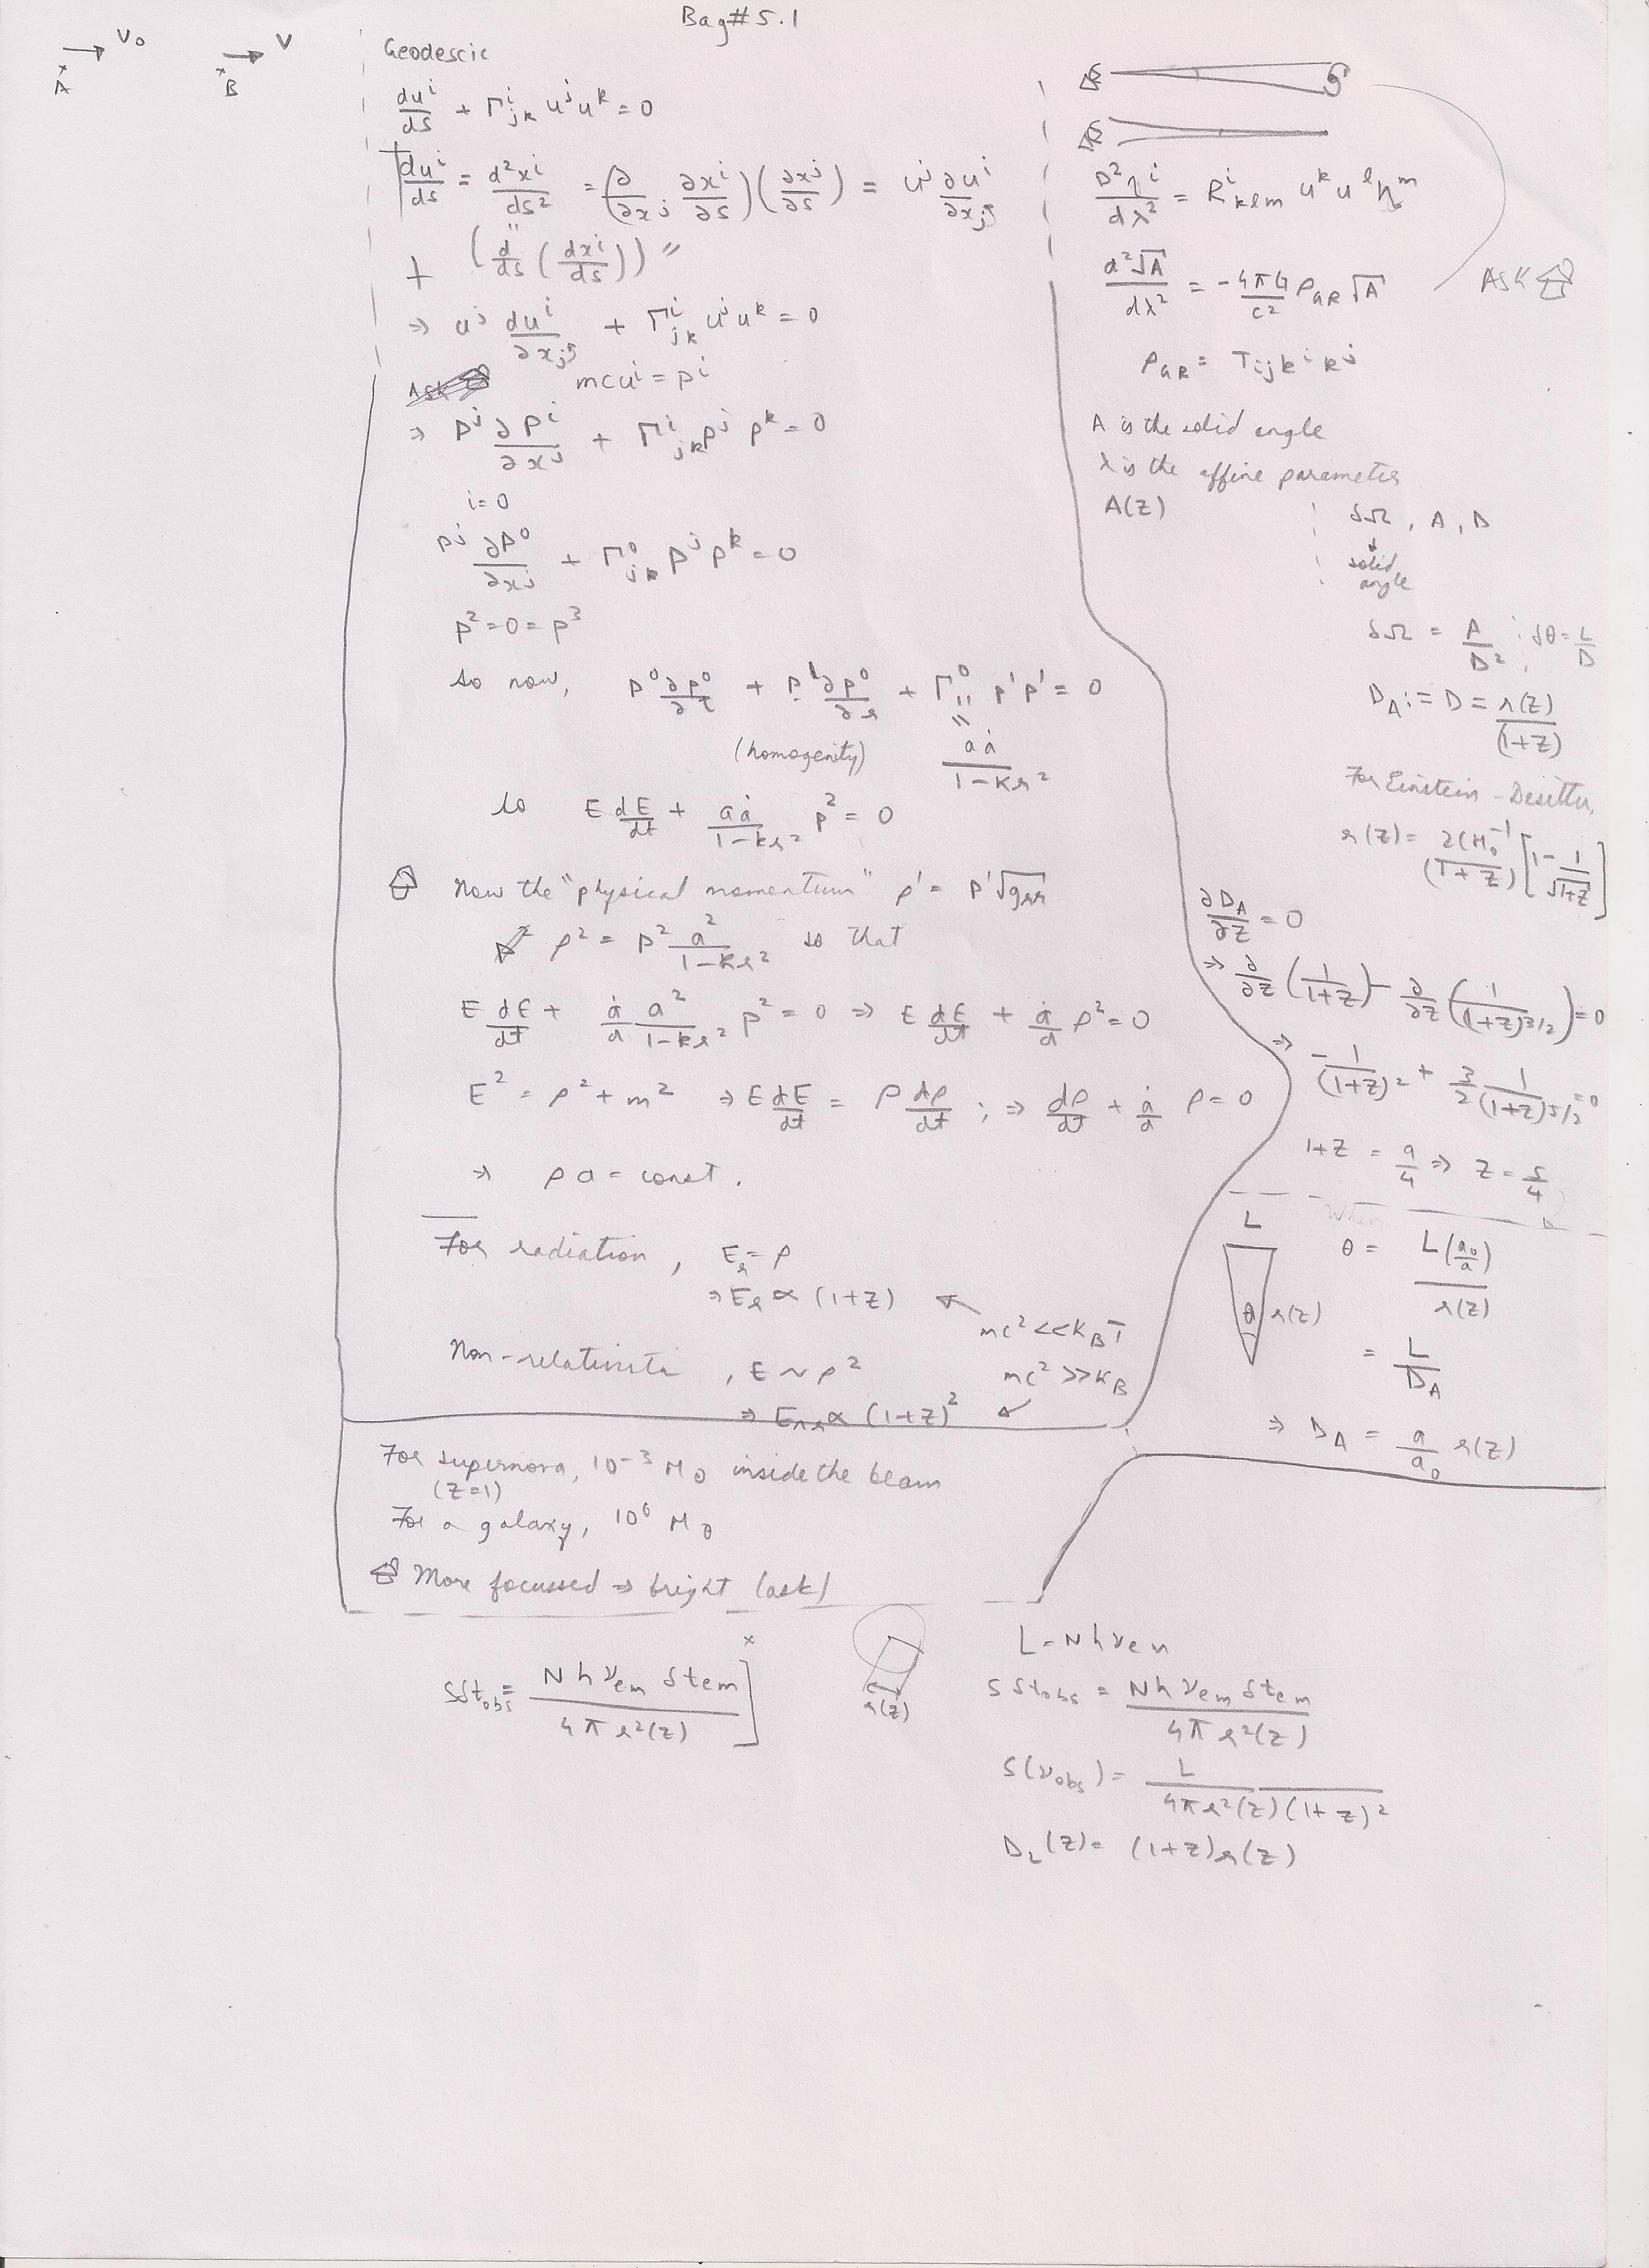 Bag#5.1
A → V₀
B → V
Geodescic
du^i/ds + Γ^i_jk u^j u^k = 0
du^i/ds = d²x^i/ds² = (∂/∂x_j ∂x^i/∂s)(∂x^j/∂s) = u^j ∂u^i/∂x_j
(d/ds (dx^i/ds))
⇒ u^j du^i/∂x_j + Γ^i_jk u^j u^k = 0
mcu^i = p^i
⇒ P^j ∂P^i/∂x^j + Γ^i_jk P^j P^k = 0
i = 0
P^j ∂P^0/∂x^j + Γ^0_jk P^j P^k = 0
P² = 0 = P³
so now, P^0 ∂P^0/∂t + P^1 ∂P^0/∂r + Γ^0_11 P^1 P^1 = 0
(homogenity) a ȧ/(1-kr²)
so E dE/dt + a ȧ/(1-kr²) P² = 0
Now the "physical momentum" ρ' = P'√g_rr
ρ² = P² a²/(1-kr²) so that
E dE/dt + ȧ/a a²/(1-kr²) P² = 0 ⇒ E dE/dt + ȧ/a ρ² = 0
E² = ρ² + m² ⇒ E dE/dt = ρ dρ/dt ; ⇒ dρ/dt + ȧ/a ρ = 0
⇒ ρ a = const.
For radiation, E_r = ρ
⇒ E_r ∝ (1+Z)
mc² << K_B T
Non-relativistic, E ~ ρ²
mc² >> K_B
⇒ E_nr ∝ (1+Z)²
For supernova, 10⁻³ M⊙ inside the beam
(Z=1)
For a galaxy, 10⁶ M⊙
More focussed ⇒ bright (ask)
SSt_obs = N h ν_em δt_em / 4π r²(Z) ]ˣ
D²η^i/dλ² = R^i_klm u^k u^l η^m
d²√A/dλ² = -4πG/c² ρ_aR √A
ASK
ρ_aR = T_ij k^i k^j
A is the solid angle
λ is the affine parameter
A(Z)
δΩ, A, D
solid
angle
δΩ = A/D² ; δθ = L/D
D_A := D = r(Z)/(1+Z)
For Einstein-Desitter,
r(Z) = 2CH₀⁻¹/(1+Z) [1 - 1/√(1+Z)]
∂D_A/∂Z = 0
⇒ ∂/∂Z (1/(1+Z)) - ∂/∂Z (1/(1+Z)^3/2) = 0
⇒ -1/(1+Z)² + 3/2 1/(1+Z)^5/2 = 0
1+Z = 9/4 ⇒ Z = 5/4
When
L
θ r(Z)
θ = L(a₀/a)/r(Z)
= L/D_A
⇒ D_A = a/a₀ r(Z)
r(Z)
L = N h ν_em
S δt_obs = N h ν_em δt_em / 4π r²(Z)
S(ν_obs) = L / 4π r²(Z) (1+Z)²
D_L(Z) = (1+Z) r(Z)